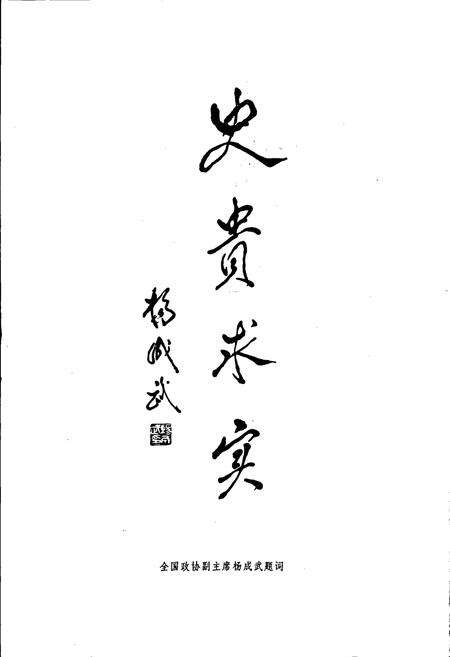 史貴求实
杨成武
全国政协副主席杨成武题词